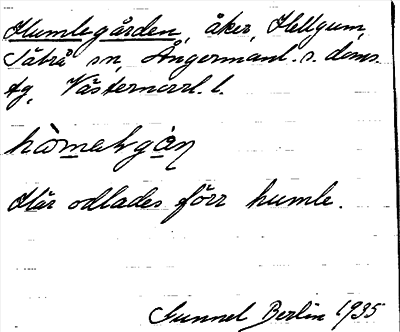 Humlegården, åker, Hellgum,
Säbrå sn, Ångermanl. s. doms.
tg, Västernorrl. l.
hòmahgàɳ
Här odlades förr humle.
Gunnel Berlin 1935